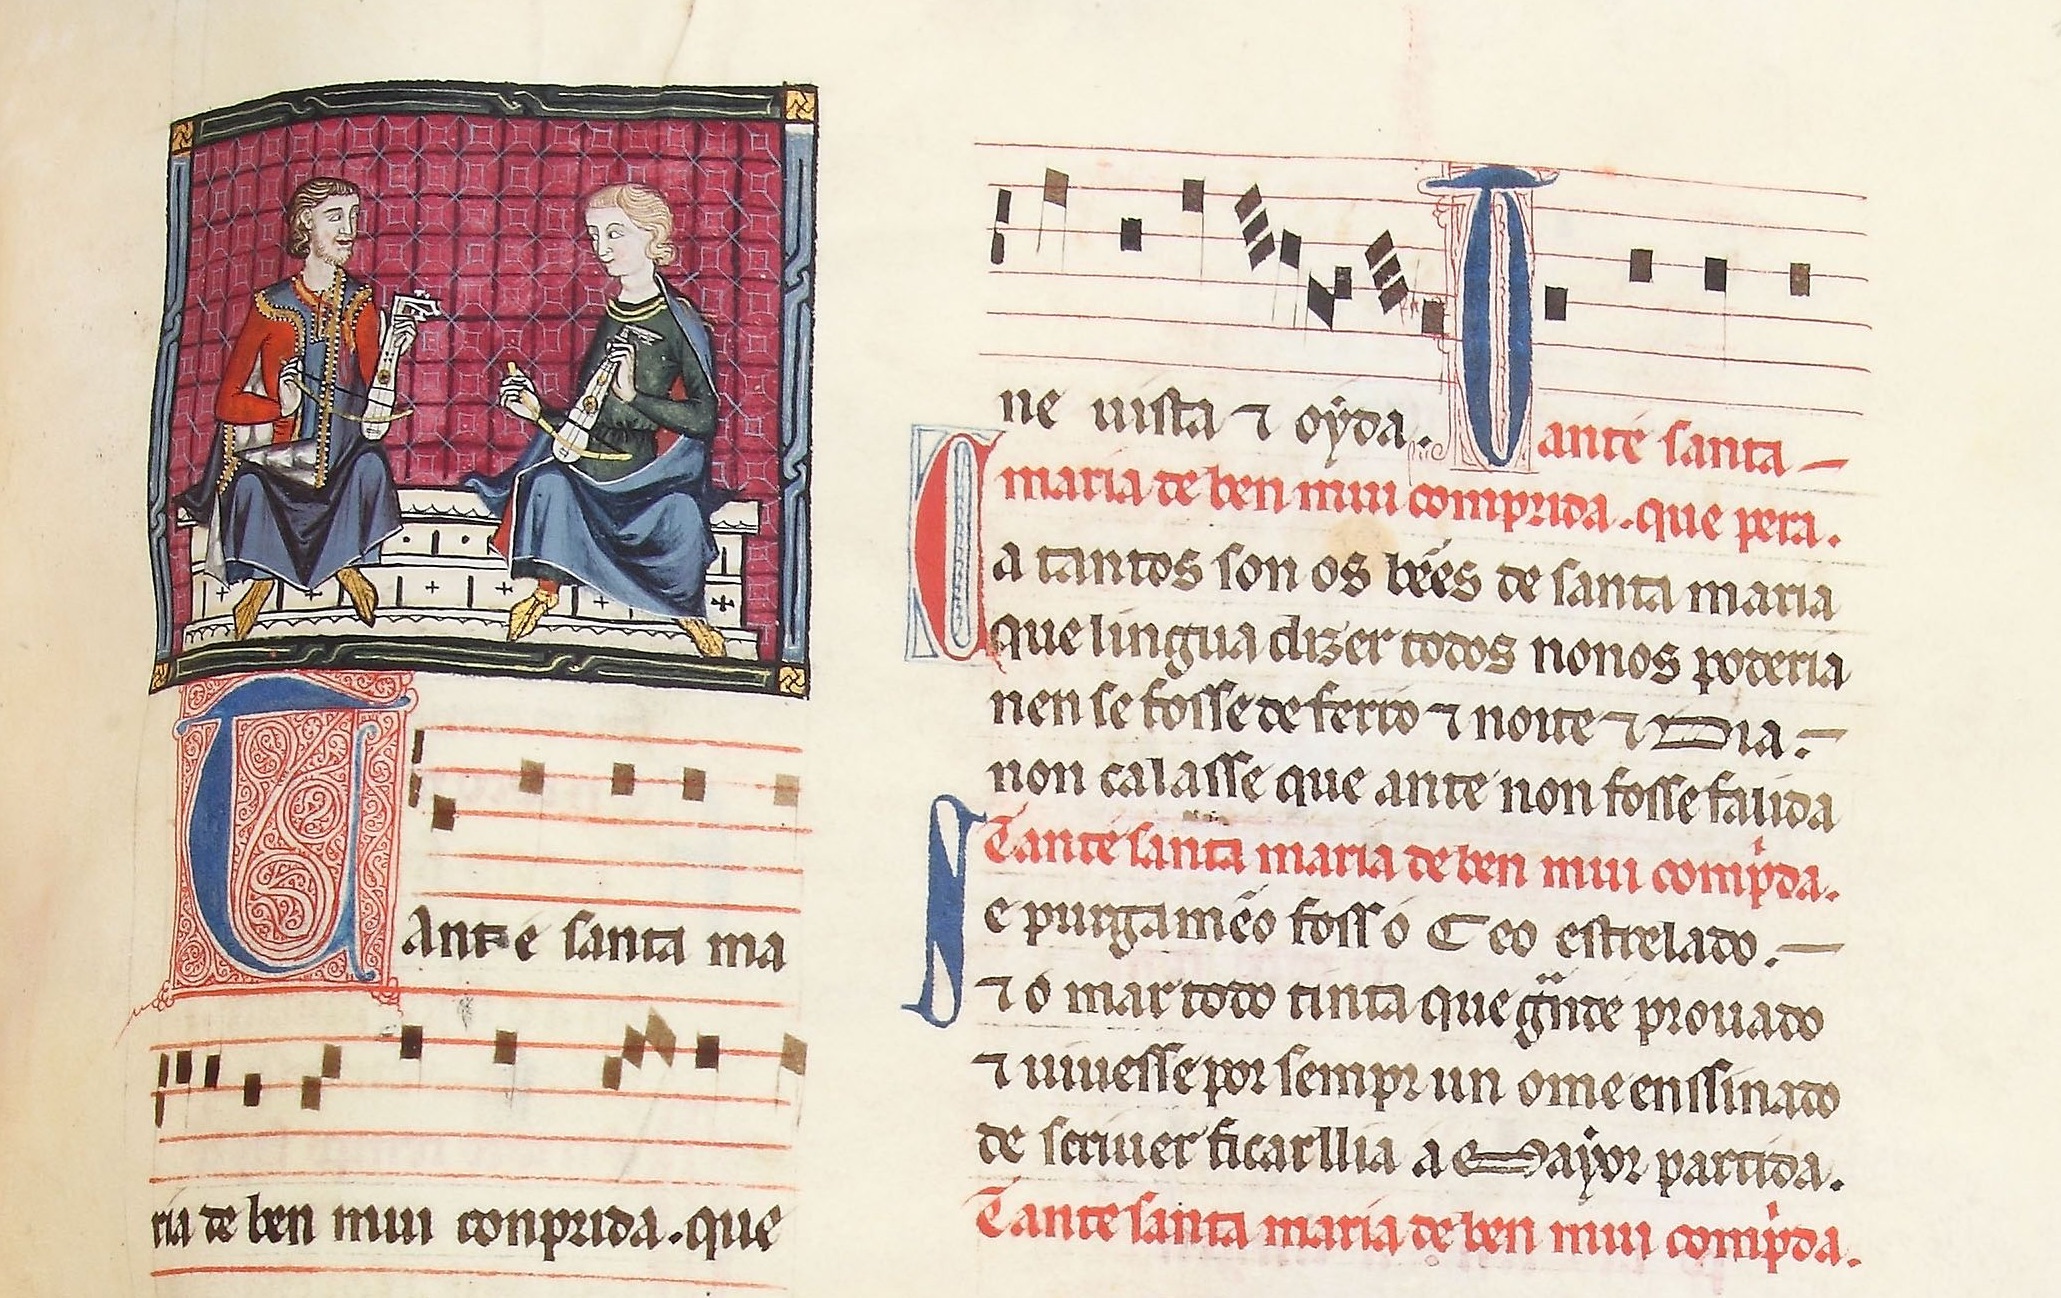 Tante santa ma
ria de ben mui conprida. que
ne uista ⁊ oẏda.
Tante santa
maria de ben mui comprida. que pera.
Ca tantos son os bẽes de santa maria
que lingua dizer todos nonos poderia
nen se fosse de ferro ⁊ noite ⁊ Dia.
non calasse que ante non fosse falida
Tante santa maria de ben mui comp'da.
Se purgamẽo foss o Ceo estrelado.
⁊ o mar todo tinta que grande prouado
⁊ uiuesse por sempr un ome enssinado
de scriuer ficarllia a Mayor partida.
Tante santa maria de ben mui comp'da.